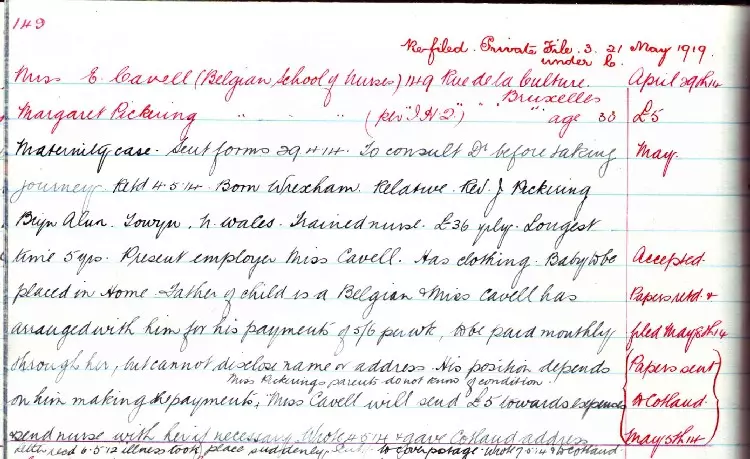 149
Refiled. Private File. 3. 21 May 1919.
under C.
Miss E. Cavell (Belgian School of Nurses) 149 Rue de la Culture. April 29th 14
Bruxelles
Margaret Pickering " " " (per "I.H.2") " " " age 30 £5
Maternity case. Sent forms 29.4.14. To consult Dr before taking May.
journey. Retd 4.5.14. Born Wrexham. Relative. Rev. J Pickering
Bryn Alun. Towyn. N. Wales. Trained nurse. £36 yrly. Longest
time 5 yrs. Present employer Miss Cavell. Has clothing. Baby to be Accepted.
placed in Home. Father of child is a Belgian & Miss Cavell has Papers retd &
arranged with him for his payments of 5/6 per wk, to be paid monthly filed May 8th 14
through her, but cannot disclose name or address. His position depends Papers sent
Miss Pickerings parents do not know of condition.
on him making the payments, Miss Cavell will send £5 towards expenses to Cotland
send nurse with her if necessary. Wrote 4.5.14 & gave Cotland address May 5th 14
illness took place suddenly to cover postage. Wrote 7.5.14 & to Cotland